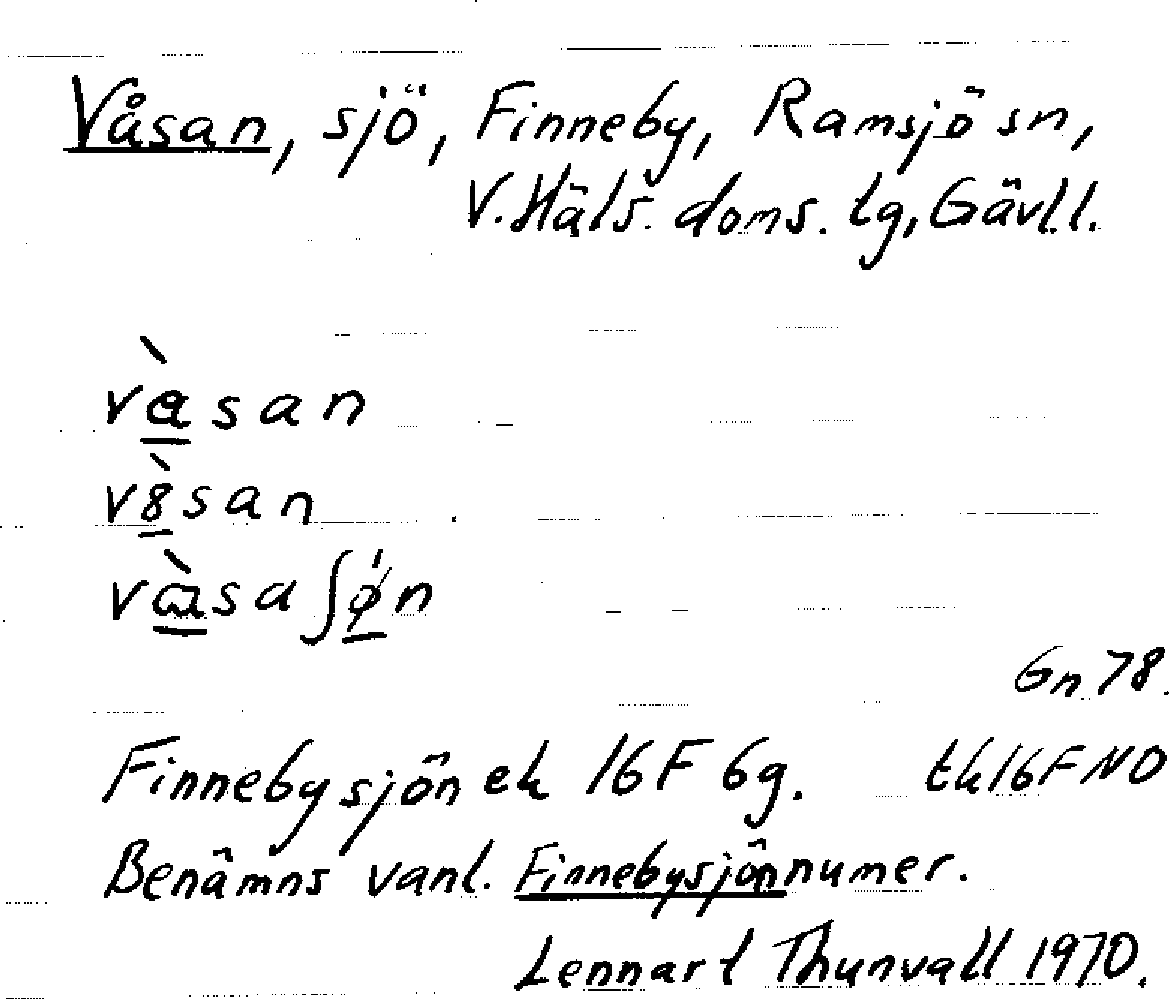 Våsan, sjö, Finneby, Ramsjö sn,
V. Häls. doms. tg, Gävl.l.
vàsan
v8̀san
vɷ̀sa ʃǿn
Gn 78.
Finnebysjön ek 16F 6g. tk16F NO
Benämns vanl. Finnebysjön numer.
Lennart Thunvall 1970.